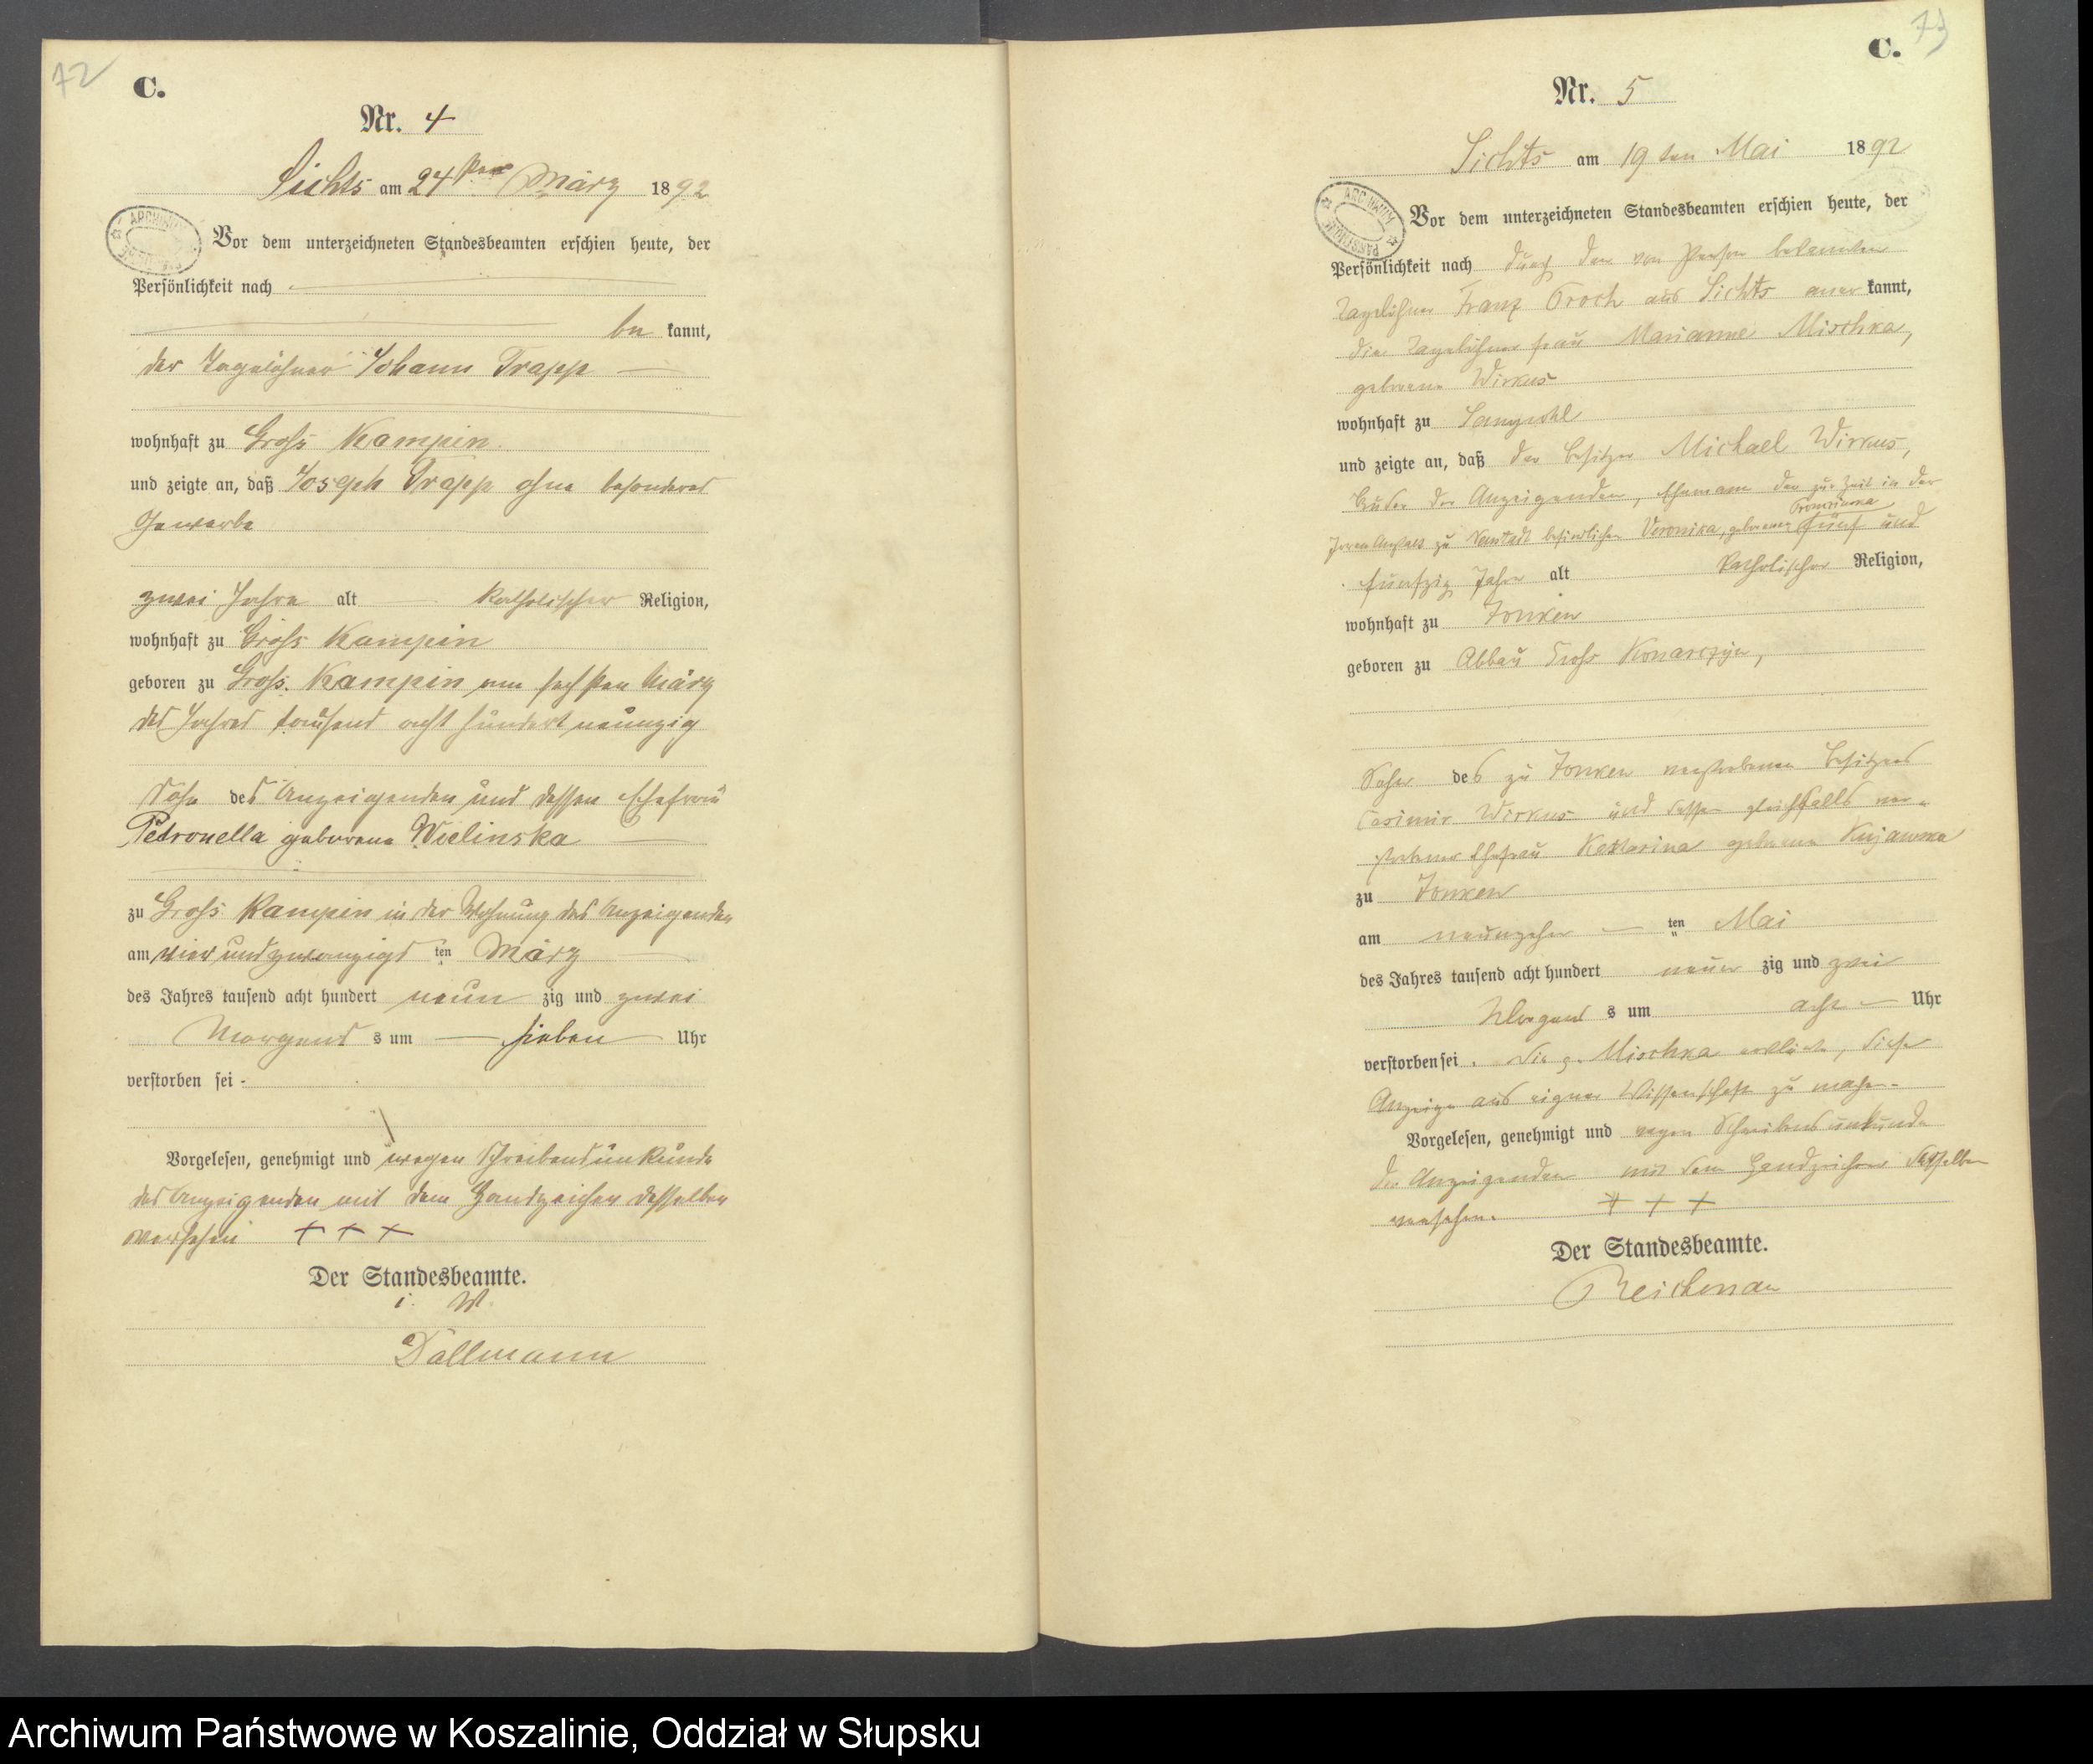 72
C.
Nr. 4
Sichts am 24ten März 1892
Vor dem unterzeichneten Standesbeamten erschien heute, der
Persönlichkeit nach
be kannt,
der Tagelöhner Johann Trapp
wohnhaft zu Groß Kampin.
und zeigte an, daß Joseph Trapp ohne besonderes
Gewerbe
zwei Jahre alt katholischer Religion,
wohnhaft zu Groß Kampin
geboren zu Groß Kampin am sechsten März
des Jahres tausend acht hundert neunzig
Sohn des Anzeigenden und dessen Ehefrau
Petronella geborene Wielinska
zu Groß Kampin in der Wohnung des Anzeigenden
am vier und zwanzigs ten März
des Jahres tausend acht hundert neun zig und zwei
Morgens s um sieben Uhr
verstorben sei.
Vorgelesen, genehmigt und wegen Schreibensunkunde
des Anzeigenden mit dem Handzeichen desselben
versehen + + +
Der Standesbeamte.
i. V.
Dallmann
C.
Nr. 5
Sichts am 19 ten Mai 1892
ARCHIWUM PAŃSTWOWE
Vor dem unterzeichneten Standesbeamten erschien heute, der
Persönlichkeit nach durch den von Person bekannten
Tagelöhner Franz Troch aus Sichts aner kannt,
die Tagelöhner frau Marianne Mischka,
geborene Wirkus
wohnhaft zu
und zeigte an, daß der Besitzer Michael Wirkus,
Bruder der Anzeigenden, Ehemann der zur Zeit in der
Irren Anstalt zu Neustadt befindlichen Veronika, geborenen fünf und
fünfzig Jahre alt katholischer Religion,
wohnhaft zu Jonken
geboren zu Abbau Groß Konarczyn,
Sohn des zu Jonken verstorbenen Besitzers
Casimir Wirkus und dessen gleichfalls ver-
storbener Ehefrau Katharina geborene Kujawska
zu Jonken
am neunzehn ten Mai
des Jahres tausend acht hundert neun zig und zwei
Morgens s um acht Uhr
verstorben sei. Die p. Mischka erklärte, diese
Anzeige aus eigner Wissenschaft zu machen.
Vorgelesen, genehmigt und wegen Schreibensunkunde
der Anzeigenden mit dem Handzeichen derselben
versehen. + + +
Der Standesbeamte.
Reichenau
Archiwum Państwowe w Koszalinie, Oddział w Słupsku